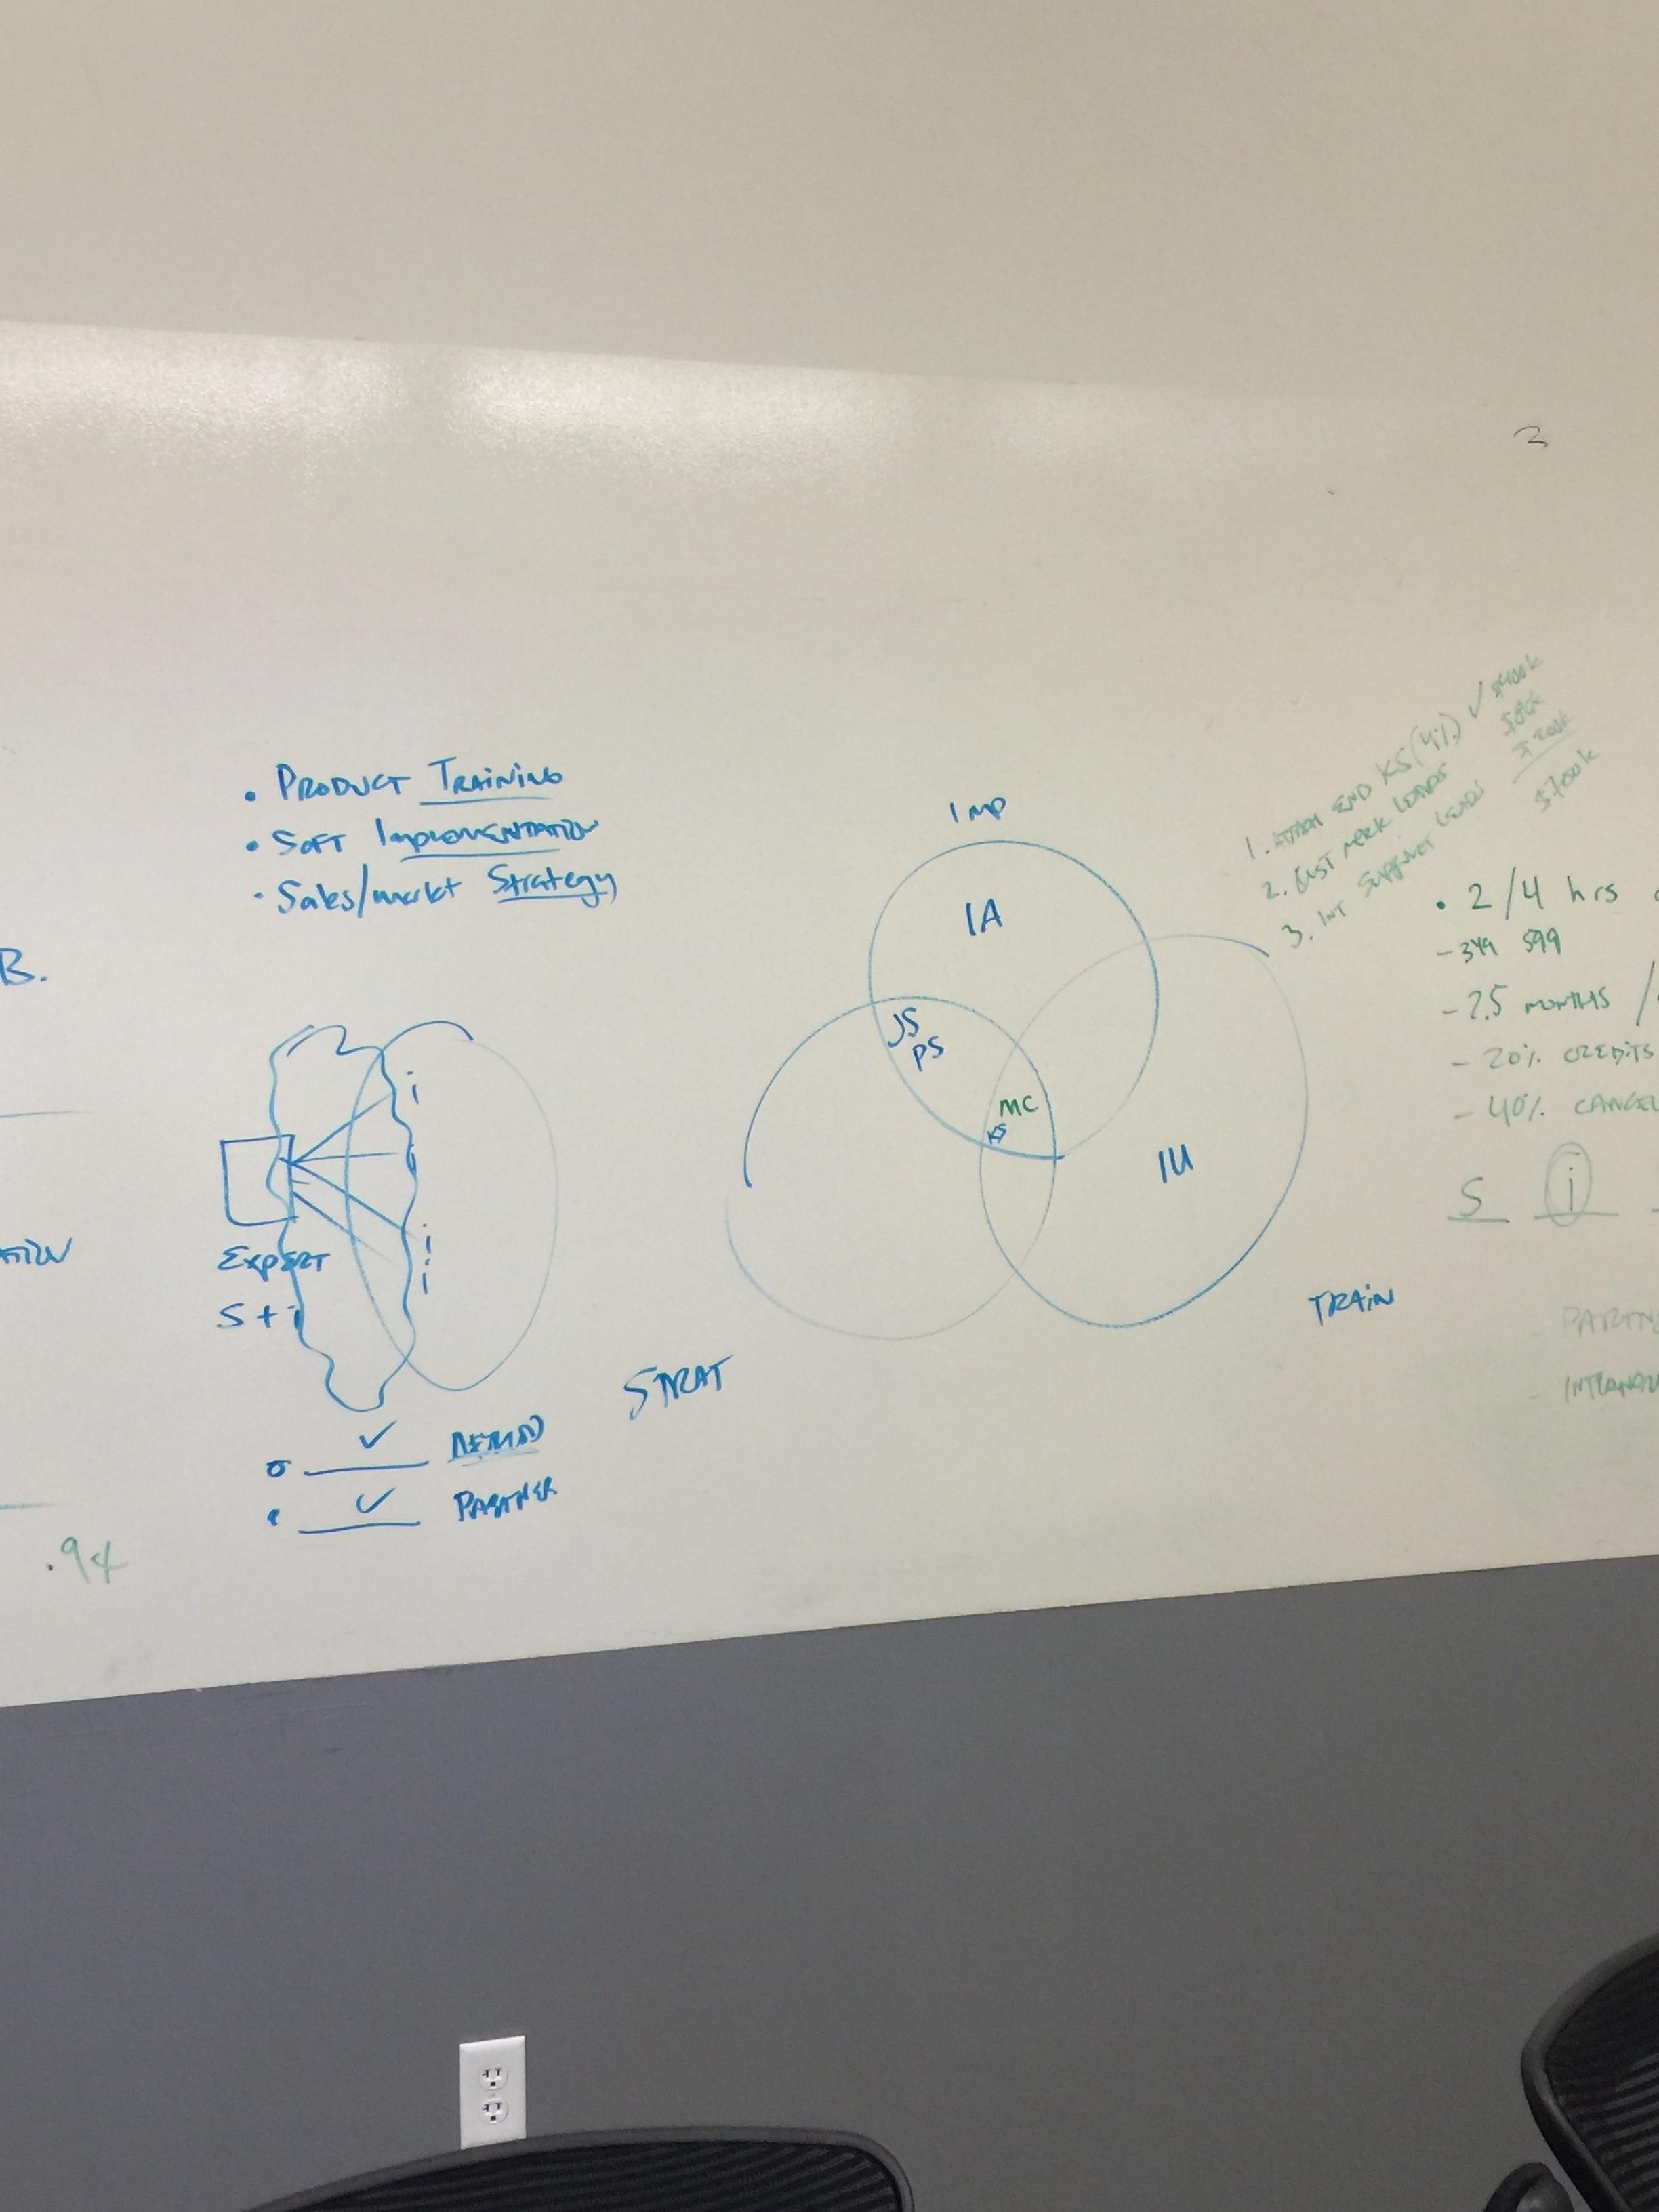 • PRODUCT TRAINING
• SOFT IMPLEMENTATION
• Sales/markt Strategy
B.
EXPERT
S + i
i
i
i
✓ DEMAND
✓ PARTNER
.94
IMP
IA
JS
PS
MC
KS
IU
STRAT
TRAIN
1. END KS (4%) ✓ $400k
2. CUST LEADS
3. INT SUPPORT LEADS
$200k
$700k
• 2/4 hrs
- 349 599
- 2.5 MONTHS /
- 20% CREDITS
- 40% CANCEL
S i
- PARTN
- INTERNAL